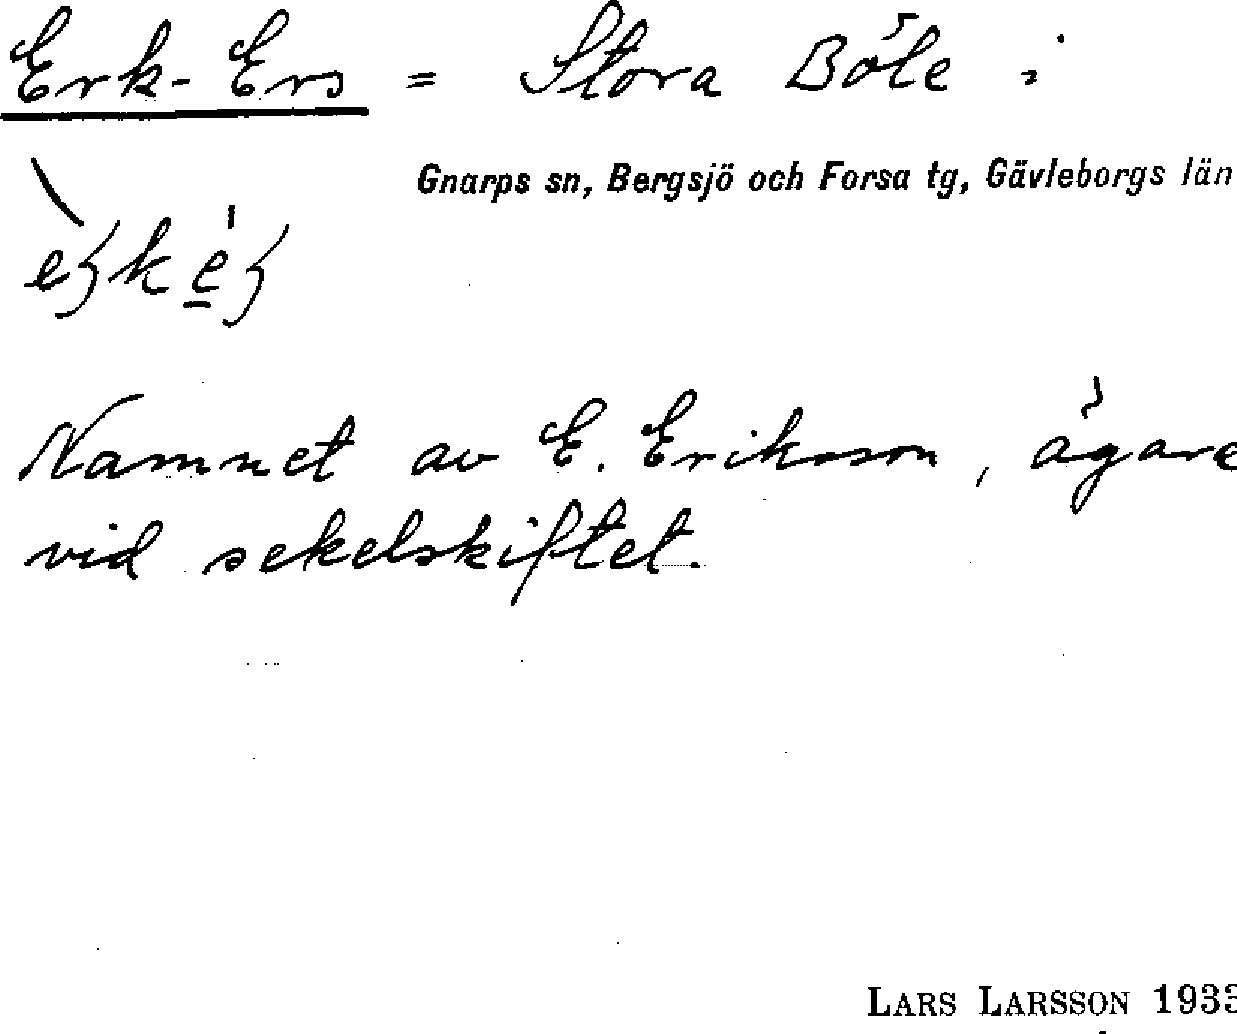 Erk-Ers = Stora Böle i
Gnarps sn, Bergsjö och Forsa tg, Gävleborgs län
Namnet av E. Eriksson, ägare
vid sekelskiftet.
LARS LARSSON 1933